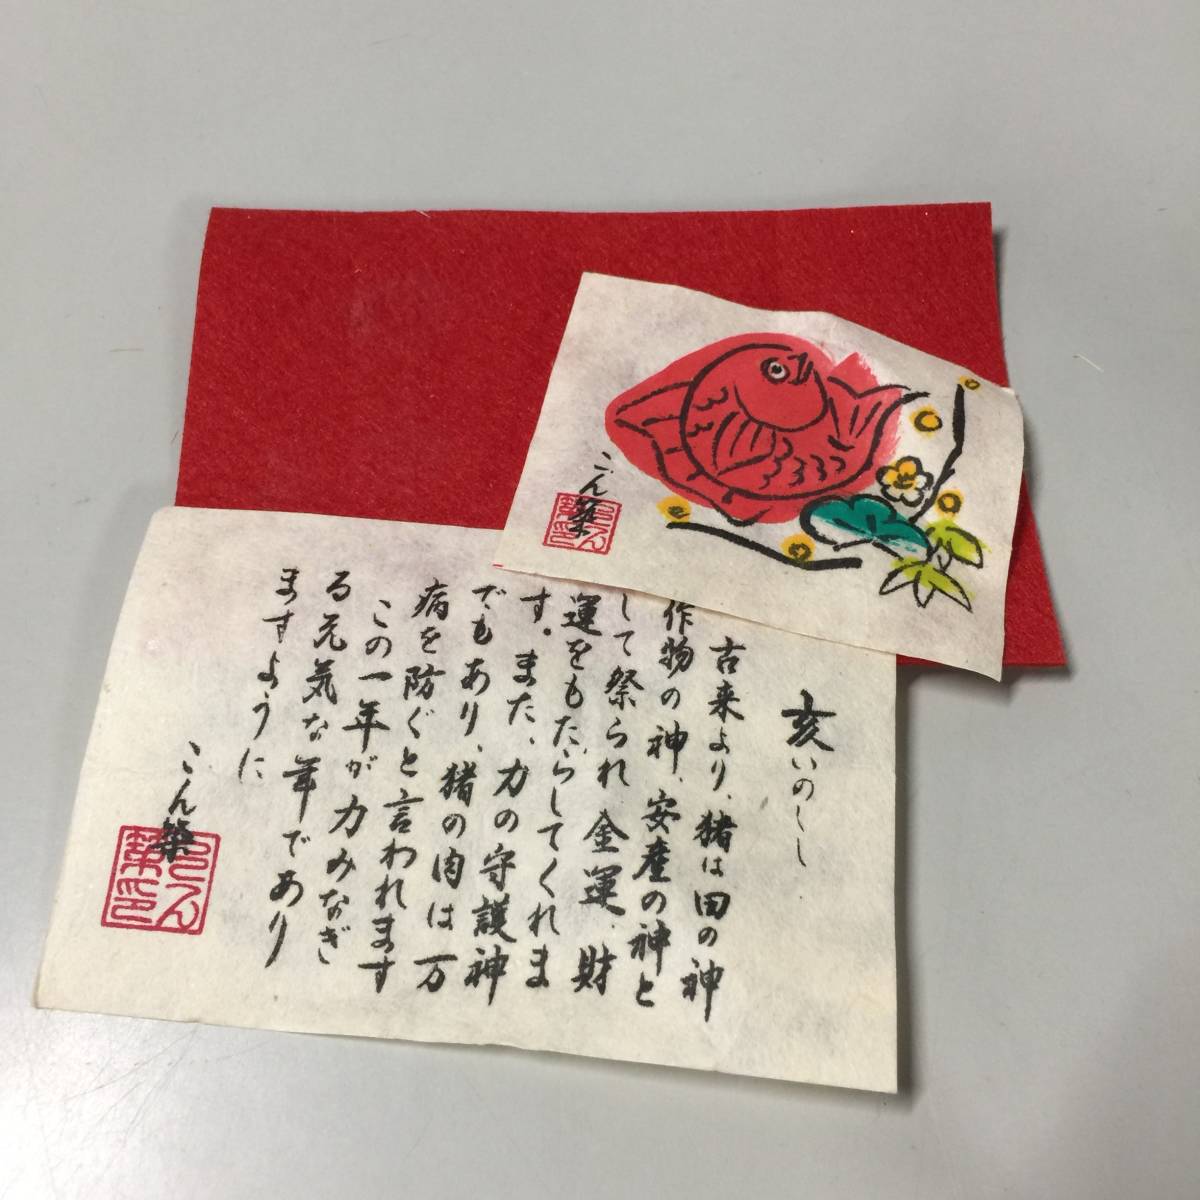 亥いのしし
古来より、猪は田の神
作物の神、安産の神と
して祭られ 金運、財
運をもたらしてくれま
す。また、力の守護神
でもあり、猪の肉は万
病を防ぐと言われます
この一年が力みなぎ
る元気な年であり
ますように
こん築
こん築